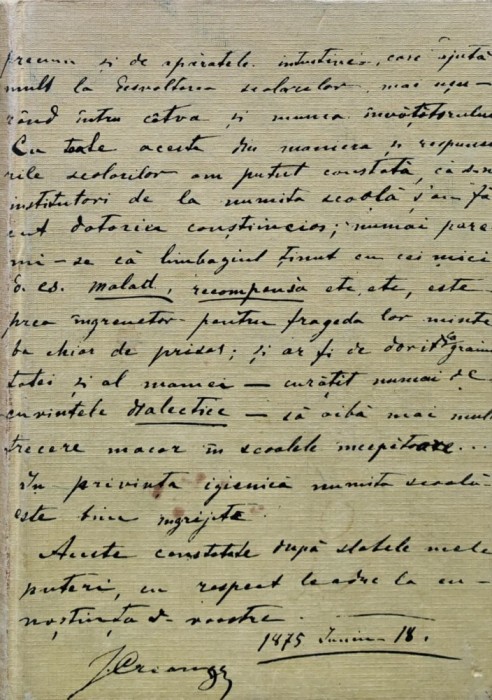 precum și de aparatele intuitive, care ajută
mult la desvoltarea scolarilor, mai ușu-
rând întru câtva și munca învățătorului
Cu toate aceste din manera și respunsu-
rile scolarilor am putut constată, că d-nii
institutori de la numita scoală ș'au fă
cut datoria conștiincios; numai pare
mi-se că limbagiul ținut cu cei mici
d. es. malad, recompensă etc. etc, este
prea îngreuetor pentru frageda lor minte
ba chiar de prisos; și ar fi de dorit ca graiul
tatei și al mamei — curățit numai de
cuvintele dialectice — să aibă mai mult
trecere macar în scoalele începătoare...
In privința igienică numita scoală
este bine îngrijită.
Aceste constatate după slabele mele
puteri, cu respect le aduc la cu-
noștiința d-voastre.
1875 Iuniu 18.
I Creangă